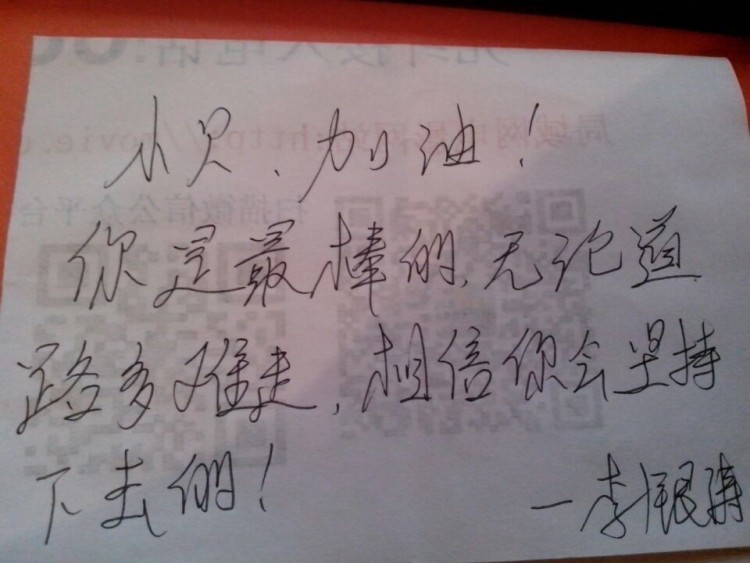 加油!
你是最棒的,无论道
路多难走,相信你会坚持
下去的!
—李银涛